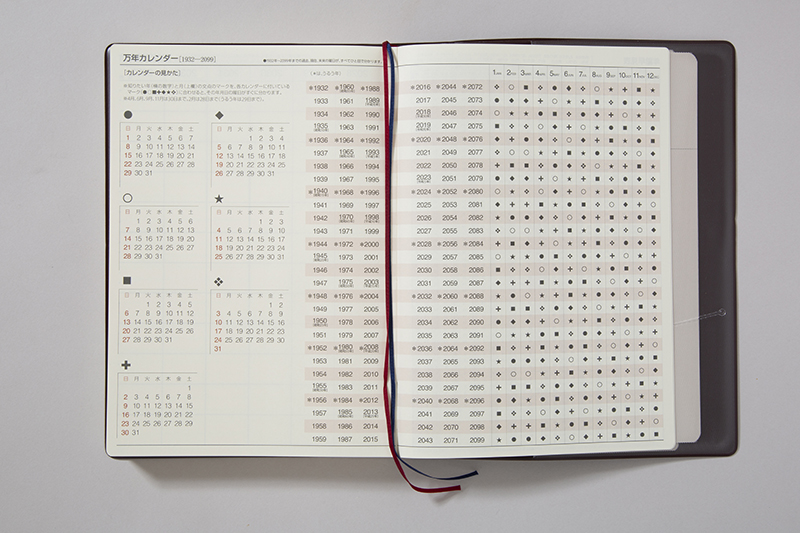 万年カレンダー[1932—2099]
[カレンダーの見かた]
(*は、うるう年)
1JAN 2FEB 3MAR 4APR 5MAY 6JUN 7JUL 8AUG 9SEP 10OCT 11NOV 12DEC
日 月 火 水 木 金 土
1 2 3 4 5 6 7
8 9 10 11 12 13 14
15 16 17 18 19 20 21
22 23 24 25 26 27 28
29 30 31
日 月 火 水 木 金 土
1 2 3 4
5 6 7 8 9 10 11
12 13 14 15 16 17 18
19 20 21 22 23 24 25
26 27 28 29 30 31
日 月 火 水 木 金 土
1 2 3 4 5 6
7 8 9 10 11 12 13
14 15 16 17 18 19 20
21 22 23 24 25 26 27
28 29 30 31
日 月 火 水 木 金 土
1 2 3
4 5 6 7 8 9 10
11 12 13 14 15 16 17
18 19 20 21 22 23 24
25 26 27 28 29 30 31
日 月 火 水 木 金 土
1 2 3 4 5
6 7 8 9 10 11 12
13 14 15 16 17 18 19
20 21 22 23 24 25 26
27 28 29 30 31
日 月 火 水 木 金 土
1 2
3 4 5 6 7 8 9
10 11 12 13 14 15 16
17 18 19 20 21 22 23
24 25 26 27 28 29 30
31
日 月 火 水 木 金 土
1
2 3 4 5 6 7 8
9 10 11 12 13 14 15
16 17 18 19 20 21 22
23 24 25 26 27 28 29
30 31
*1932 *1960 *1988 *2016 *2044 *2072
1933 1961 1989 2017 2045 2073
1934 1962 1990 2018 2046 2074
1935 1963 1991 2019 2047 2075
*1936 *1964 *1992 *2020 *2048 *2076
1937 1965 1993 2021 2049 2077
1938 1966 1994 2022 2050 2078
1939 1967 1995 2023 2051 2079
*1940 *1968 *1996 *2024 *2052 *2080
1941 1969 1997 2025 2053 2081
1942 1970 1998 2026 2054 2082
1943 1971 1999 2027 2055 2083
*1944 *1972 *2000 *2028 *2056 *2084
1945 1973 2001 2029 2057 2085
1946 1974 2002 2030 2058 2086
1947 1975 2003 2031 2059 2087
*1948 *1976 *2004 *2032 *2060 *2088
1949 1977 2005 2033 2061 2089
1950 1978 2006 2034 2062 2090
1951 1979 2007 2035 2063 2091
*1952 *1980 *2008 *2036 *2064 *2092
1953 1981 2009 2037 2065 2093
1954 1982 2010 2038 2066 2094
1955 1983 2011 2039 2067 2095
*1956 *1984 *2012 *2040 *2068 *2096
1957 1985 2013 2041 2069 2097
1958 1986 2014 2042 2070 2098
1959 1987 2015 2043 2071 2099